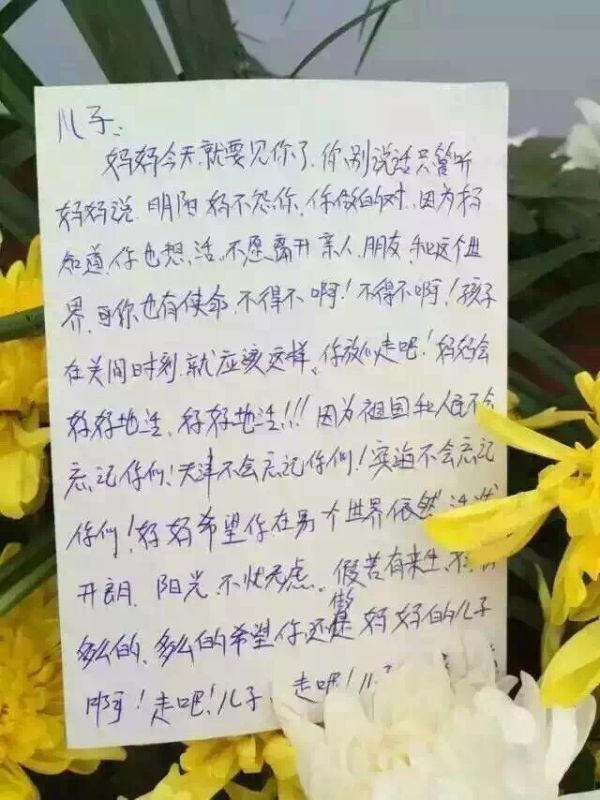 儿子:
妈妈今天就要见你了,你别说话只管听
妈妈说,明阳妈不怨你,你做的对,因为妈
知道,你也想活,不愿离开亲人,朋友,和这个世
界,可你也有使命,不得不啊!不得不啊!孩子
在关间时刻,就应该这样,你放心走吧!妈妈会
好好地活,好好地活!!!因为祖国和人民不会
忘记你们!天津不会忘记你们!滨海不会忘记
你们!妈妈希望你在另个世界依然
开朗,阳光,不忧无虑。假若有来生,
多么的,多么的希望你还做妈妈的儿子
啊!走吧!儿子,走吧!儿